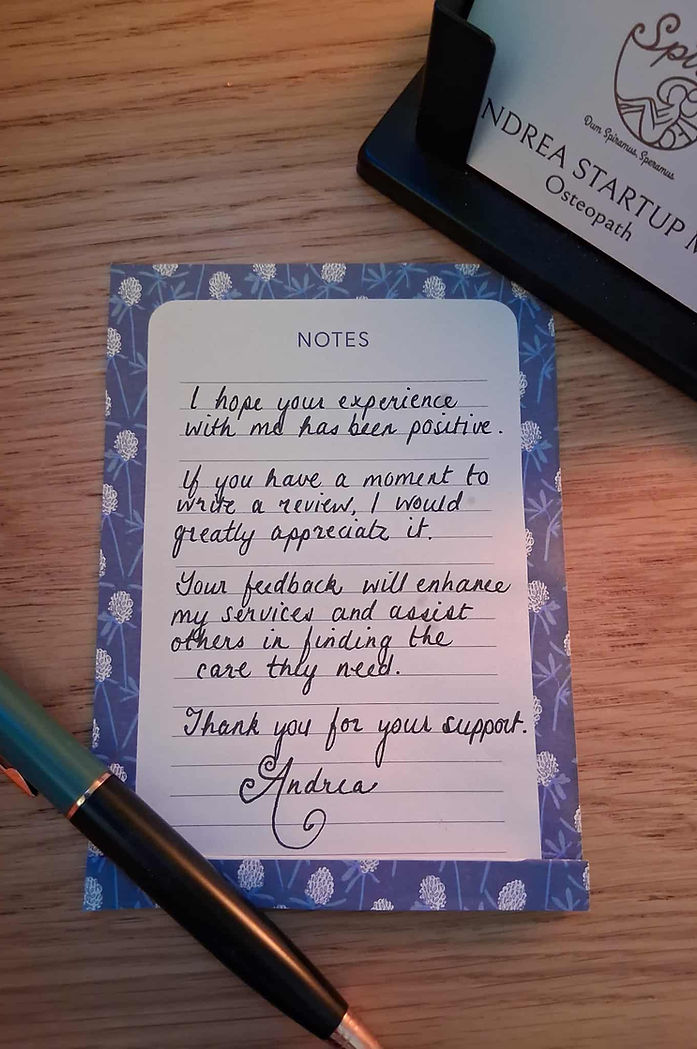 Dum Spiramus, Speramus
NDREA STARTUP
Osteopath
NOTES
I hope your experience
with me has been positive.
If you have a moment to
write a review, I would
greatly appreciate it.
Your feedback will enhance
my services and assist
others in finding the
care they need.
Thank you for your support.
Andrea